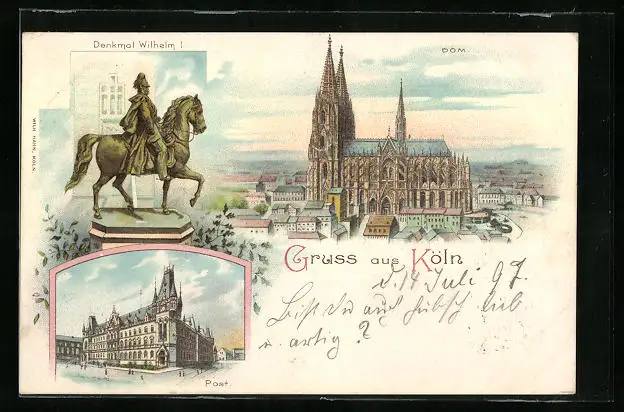 Denkmal Wilhelm I
DOM.
WILH. HAHN, KÖLN.
Gruss aus Köln
d. 14 Juli 97.
Bist Du auch hübsch lieb
u. artig?
Post.